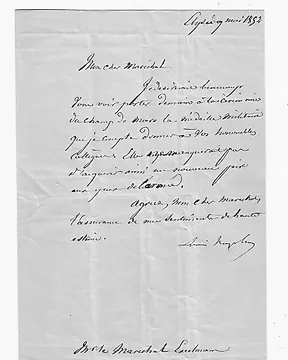 Elysée 9 mai 1852
Mon cher Maréchal
Je désirerais beaucoup
vous voir porter demain à la cérémonie
du champ de mars la médaille militaire
que je compte donner à vos honorables
collègues. Elle manquerait pas
d'acquérir ainsi un nouveau prix
aux yeux de l'armée.
agréez, mon cher maréchal,
l'assurance de mes sentiments de haute
estime.
Louis Napoléon
Mr le Maréchal